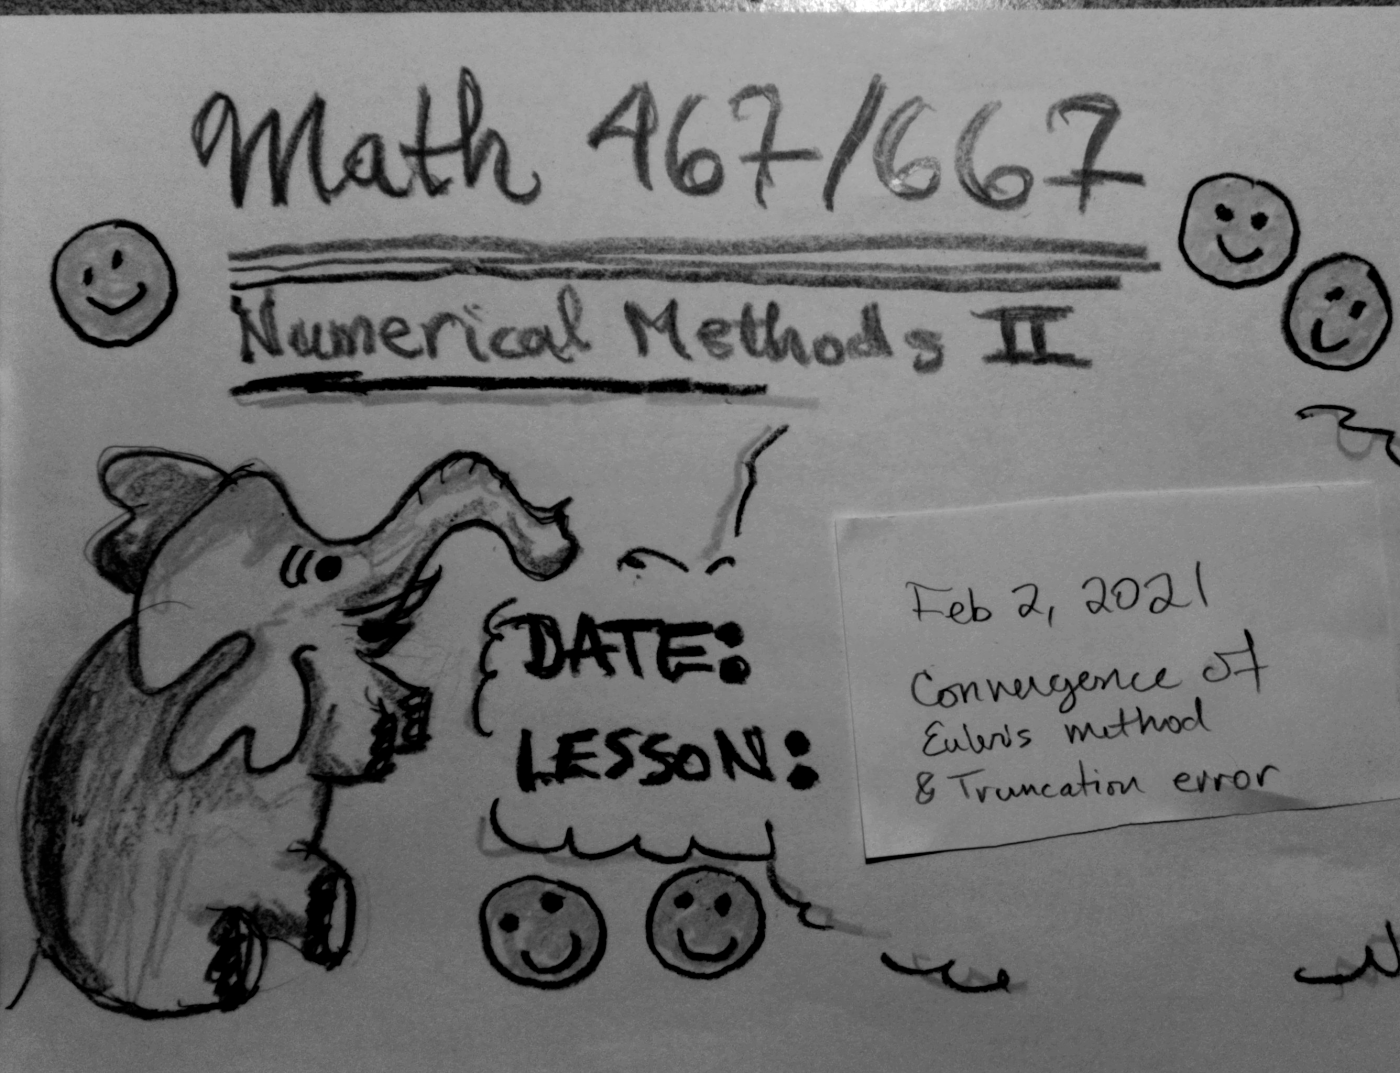 Math 467/667
Numerical Methods II
DATE:
LESSON:
Feb 2, 2021
Convergence of
Euler's method
& Truncation error